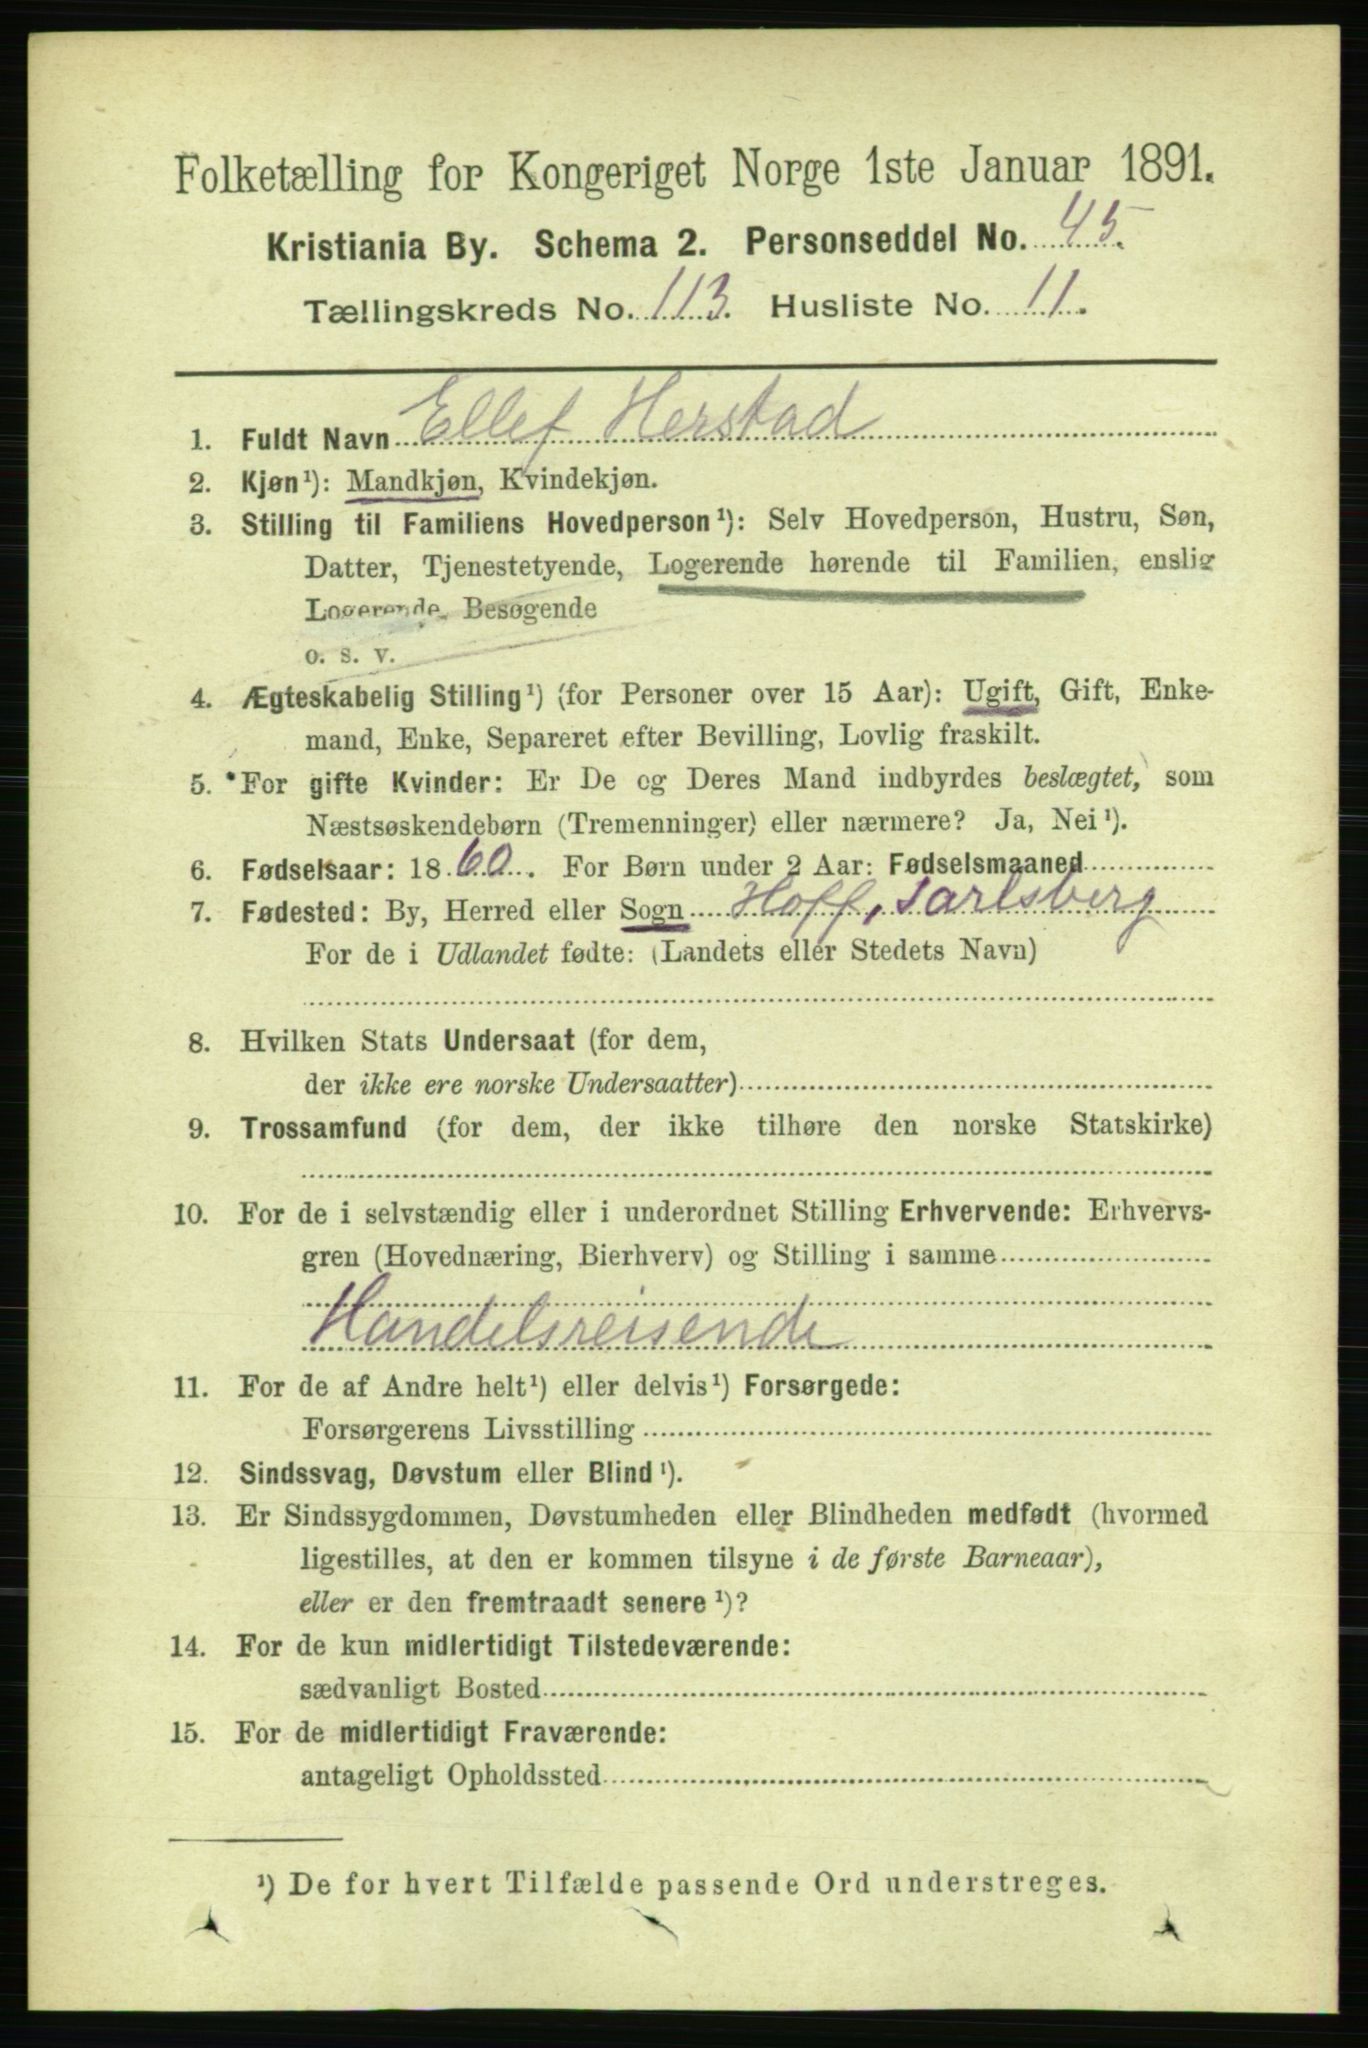 Folketælling for Kongeriget Norge 1ste Januar 1891.
Kristiania By. Schema 2. Personseddel No. 45.
Tællingskreds No. 113. Husliste No. 11.
1. Fuldt Navn Ellef Herstad
2. Kjøn¹): Mandkjøn, Kvindekjøn.
3. Stilling til Familiens Hovedperson¹): Selv Hovedperson, Hustru, Søn,
Datter, Tjenestetyende, Logerende hørende til Familien, enslig
Logerende, Besøgende
o. s. v.
4. Ægteskabelig Stilling¹) (for Personer over 15 Aar): Ugift, Gift, Enke-
mand, Enke, Separeret efter Bevilling, Lovlig fraskilt.
5. For gifte Kvinder: Er De og Deres Mand indbyrdes beslægtet, som
Næstsøskendebørn (Tremenninger) eller nærmere? Ja, Nei¹).
6. Fødselsaar: 1860. For Børn under 2 Aar: Fødselsmaaned
7. Fødested: By, Herred eller Sogn Hoff, Jarlsberg
For de i Udlandet fødte: (Landets eller Stedets Navn)
8. Hvilken Stats Undersaat (for dem,
der ikke ere norske Undersaatter)
9. Trossamfund (for dem, der ikke tilhøre den norske Statskirke)
10. For de i selvstændig eller i underordnet Stilling Erhvervende: Erhvervs-
gren (Hovednæring, Bierhverv) og Stilling i samme
Handelsreisende
11. For de af Andre helt¹) eller delvis¹) Forsørgede:
Forsørgerens Livsstilling
12. Sindssvag, Døvstum eller Blind¹).
13. Er Sindssygdommen, Døvstumheden eller Blindheden medfødt (hvormed
ligestilles, at den er kommen tilsyne i de første Barneaar),
eller er den fremtraadt senere¹)?
14. For de kun midlertidigt Tilstedeværende:
sædvanligt Bosted
15. For de midlertidigt Fraværende:
antageligt Opholdssted
¹) De for hvert Tilfælde passende Ord understreges.